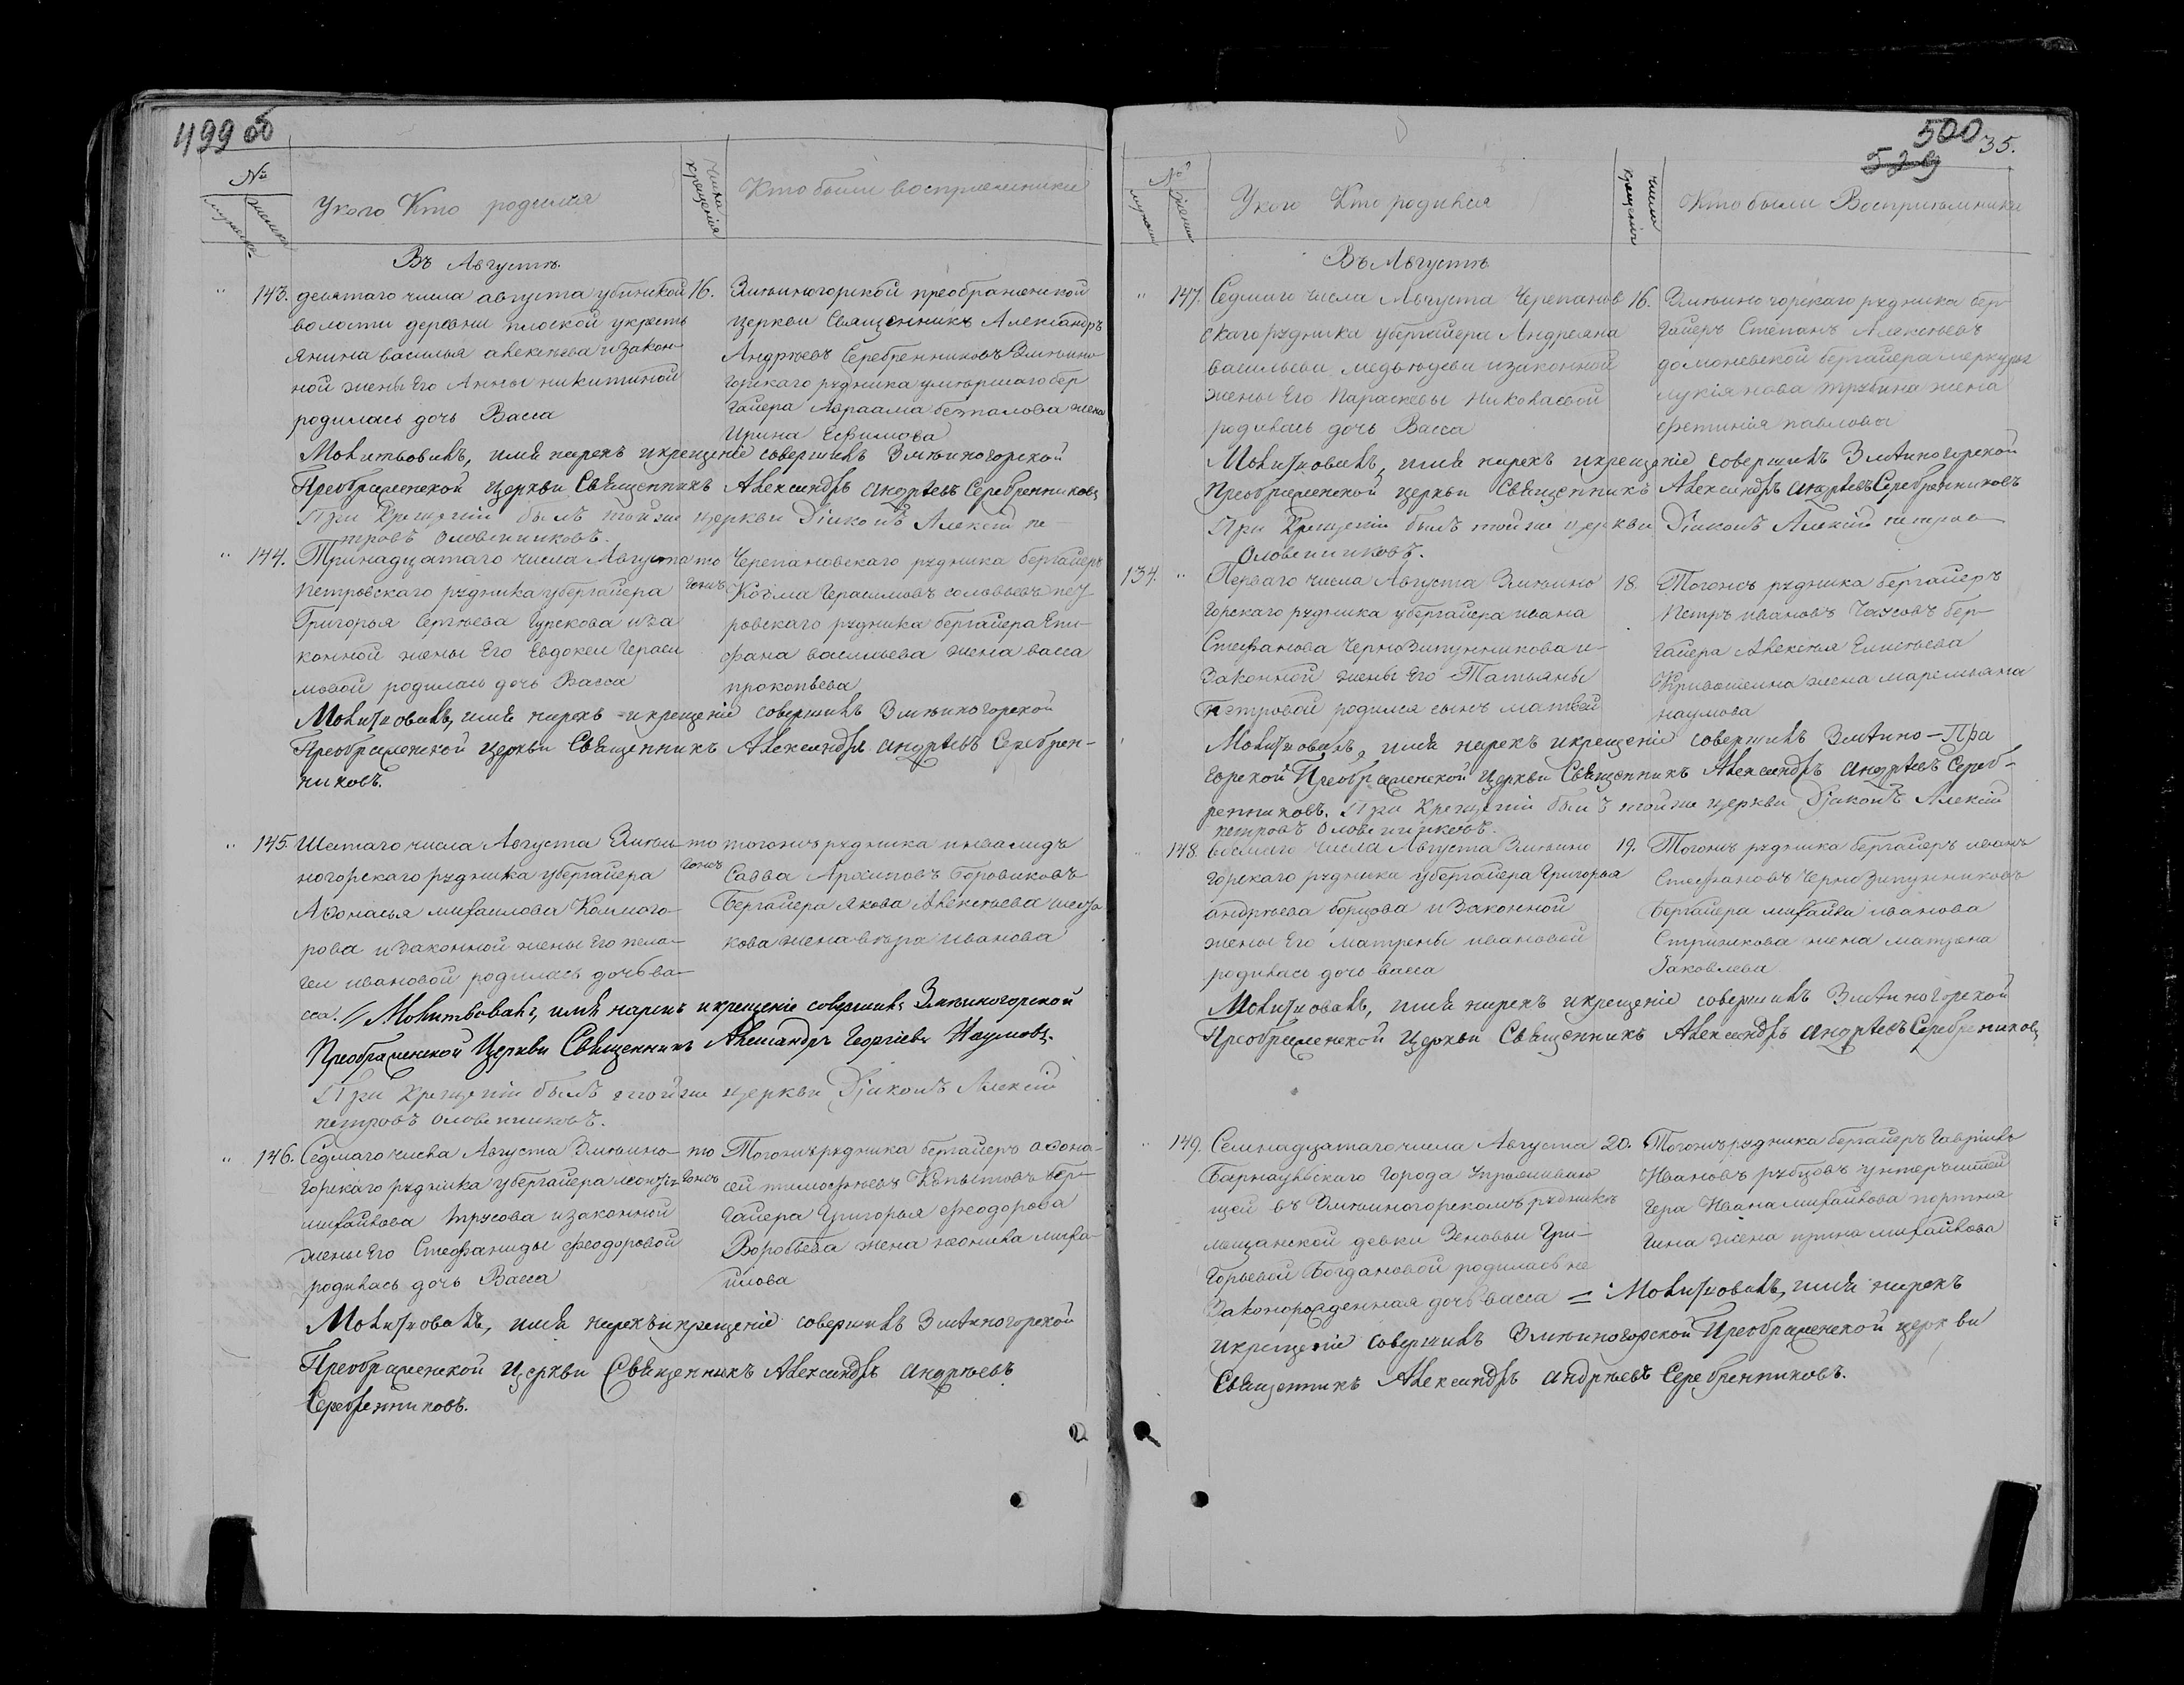 499 об
№
мужеска
женска
У кого Кто родился
Числа крещенія
Кто были восприемники
Въ Августе.
" 143. девятаго числа августа убинской 16.
волости деревни плоской укресть
янина василья алексеева и закон-
ной жены Его Анны никитиной
родилась дочь Васса
Змѣиногорской преображенской
церкви Священникъ Александръ
Андрѣевъ Серебренниковъ Змѣино
горскаго рудника умѣршаго бер
гайера Авраама безпалова жена
Ирина Ефимова
Молитвовалъ, имя нарекъ и крещеніе совершилъ Змѣиногорской
Преображенской церкви Священникъ Александръ Андрѣевъ Серебренниковъ
При Крещеніи былъ той же церкви Діяконъ Алексій пе-
тровъ Оловенниковъ.
" 144. Тринадцатаго числа Августа то
Петровскаго рудника убергайера гожъ
Григорья Сергѣева Гурекова и за
конной жены Его Евдокеи Гераси
мовой родилась дочь Васса
Черепановскаго рудника бергайеръ
Козма Герасимовъ соловьевъ пет
ровскаго рудника бергайера Епи-
фана васильева жена васса
прокопьева
Молитвовалъ, имя нарекъ и крещеніе совершилъ Змѣиногорской
Преображенской церкви Священникъ Александръ Андрѣевъ Серебрен-
никовъ.
" 145. Шестаго числа Августа Змѣи- то
ногорскаго рудника убергайера гожъ
Афонасья михаилова Колмого-
рова и законной жены Его пела-
геи ивановой родилась дочь ва-
сса.
тогожъ рудника инвалидъ
Савва Архиповъ Боровиковъ
Бергайера Якова Алексѣева
кова жена вѣра иванова
// Молитвовалъ, имя нарекъ и крещеніе совершилъ Змѣиногорской
Преображенской Церкви Священникъ Александръ Георгіевъ Наумовъ.
При Крещеніи былъ той же церкви Діяконъ Алексій
петровъ Оловенниковъ.
" 146. Седмаго числа Августа Змѣино- то
горскаго рудника убергайера леонтія гожъ
михайлова трусова и законной
жены Его Стефаниды феодоровой
родилась дочь Васса
Тогожъ рудника бергайеръ афона-
сей тимофѣевъ Копытовъ бер-
гайера Григорья феодорова
Воробьева жена неонила миха-
илова
Молитвовалъ, имя нарекъ и крещеніе совершилъ Змѣиногорской
Преображенской церкви Священникъ Александръ Андрѣевъ
Серебренниковъ.
500 35.
529
№
мужеска
женска
У кого Кто родился
число крещеніи
Кто были Восприемники
Въ Августе
" 147. Седмаго числа Августа Черепанов 16.
скаго рудника убергайера Андреяна
васильева медвѣдева и законной
жены Его Параскевы Николаевой
родилась дочь Васса
Змѣиногорскаго рудника бер-
гайеръ Степанъ Алексѣевъ
домоневской бергайера меркурья
лукіянова трубина жена
фетинія павлова
Молитвовалъ, имя нарекъ и крещеніе совершилъ Змѣиногорской
Преображенской церкви Священникъ Александръ Андрѣевъ Серебренниковъ
При Крещеніи былъ той же церкви Діяконъ Алексій петров
Оловенниковъ.
134. " Перваго числа Августа Змѣино 18.
горскаго рудника убергайера ивана
Стефанова Чернозипунникова и
Законной жены Его Татьяны
Петровой родился сынъ матвей
Тогожъ рудника бергайеръ
Петръ ивановъ Чаусовъ бер-
гайера Алексѣя Елисѣева
Кривошеина жена маремьяна
наумова
Молитвовалъ, имя нарекъ и крещеніе совершилъ Змѣино-Пра
горской Преображенской церкви Священникъ Александръ Андрѣевъ Сереб-
ренниковъ. При Крещеніи былъ той же церкви Діяконъ Алексій
петровъ Оловенниковъ.
148. восмаго числа Августа Змѣино 19.
горскаго рудника убергайера Григорья
андрѣева борцова и Законной
жены Его матрены ивановой
родилась дочь васса
Тогожъ рудника бергайеръ иванъ
Стефановъ Чернозипунниковъ
бергайера михайла иванова
Стрижкова жена матрена
Яковлева
Молитвовалъ, имя нарекъ и крещеніе совершилъ Змѣиногорской
Преображенской церкви Священникъ Александръ Андрѣевъ Серебренниковъ
149. Семнадцатаго числа Августа 20.
Барнаульскаго города проживаю
щей въ Змѣиногорскомъ рудникѣ
мещанской девки Зеновьи Гри-
горьевой Богдановой родилась не
законорожденная дочь васса
Тогожъ рудника бергайеръ Гаврило
Ивановъ рубцовъ унтеръштей
гера Ивана михайлова портня
гина жена ирина михайлова
= Молитвовалъ, имя нарекъ
и крещеніе совершилъ Змѣиногорской Преображенской церкви
Священникъ Александръ Андрѣевъ Серебренниковъ.